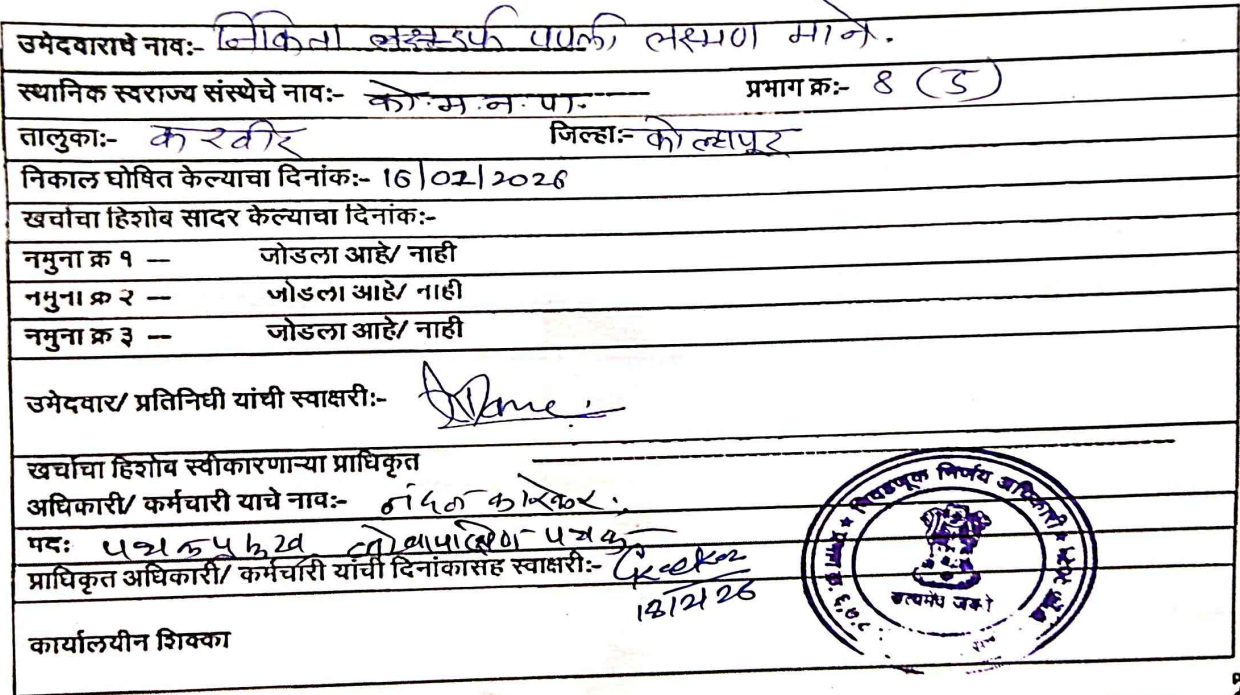 उमेदवाराचे नाव:- निकिता उर्फ पपली लक्ष्मण माने.
स्थानिक स्वराज्य संस्थेचे नाव:- को.म.न.पा. प्रभाग क्र:- 8 (ड)
तालुका:- करवीर जिल्हा:- कोल्हापूर
निकाल घोषित केल्याचा दिनांक:- 16/01/2026
खर्चाचा हिशोब सादर केल्याचा दिनांक:-
नमुना क्र १ — जोडला आहे/ नाही
नमुना क्र २ — जोडला आहे/ नाही
नमुना क्र ३ — जोडला आहे/ नाही
उमेदवार/ प्रतिनिधी यांची स्वाक्षरी:-
खर्चाचा हिशोब स्वीकारणाऱ्या प्राधिकृत
अधिकारी/ कर्मचारी याचे नाव:- नंदन कारेकर.
पद: पथकप्रमुख पथक
प्राधिकृत अधिकारी/ कर्मचारी यांची दिनांकासह स्वाक्षरी:-
18/2/26
निवडणूक निर्णय अधिकारी
सत्यमेव जयते
कार्यालयीन शिक्का